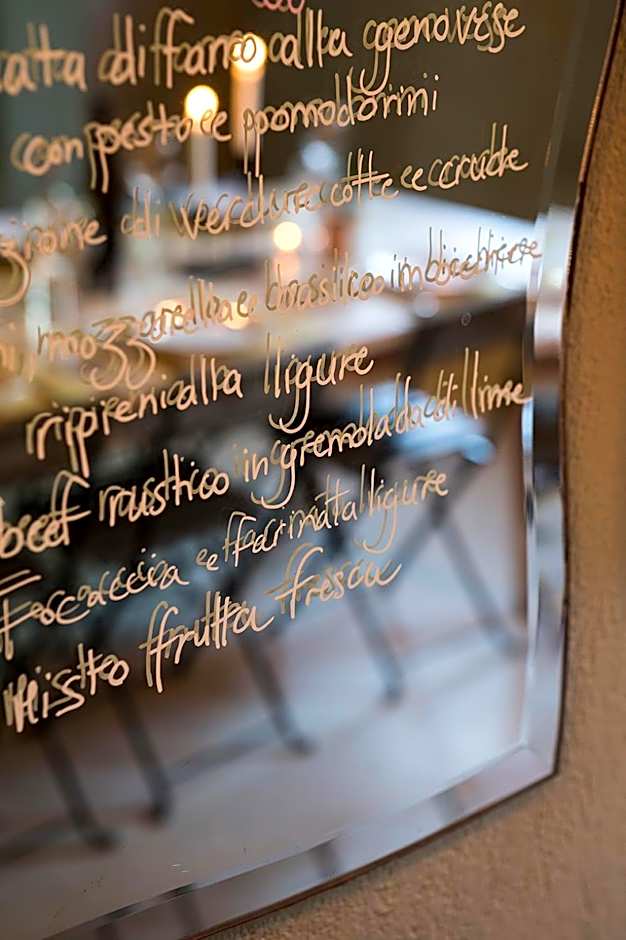 lata di farro alla genovese
con pesto e pomodorini
zione di verdure cotte e crude
i, mozzarella e basilico in bicchiere
ripieni alla ligure
beef rustico in gremolada di lime
Focaccia e farinata ligure
Misto frutta fresca